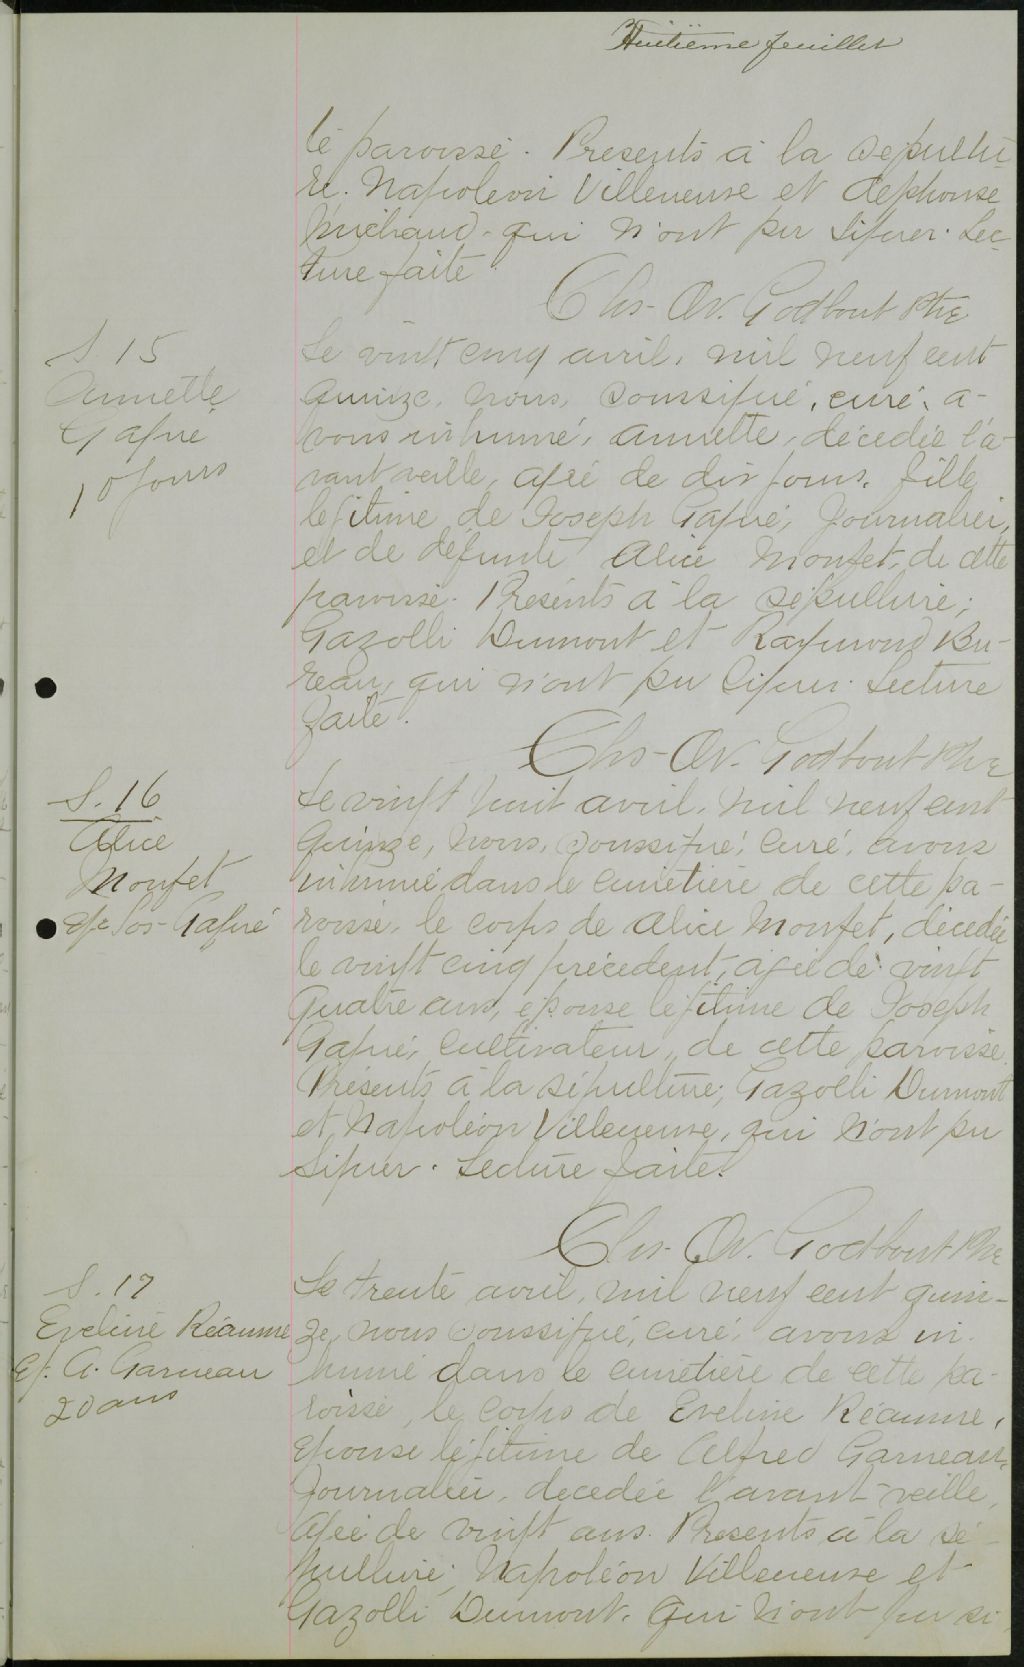 Huitième feuillet
te paroisse. Présents à la sépultu-
re. Napoléon Villeneuve et Alphonse
Michaud. qui n'ont pu signer. Lec-
ture faite
Chs-Ov. Godbout Ptre
S. 15
Annette
Gagné
10 jours
Le vingt cinq avril, mil neuf cent
quinze, nous, soussigné, curé, a-
vons inhumé, Annette, décédée l'a-
vant veille, agée de dix jours, fille
légitime de Joseph Gagné, Journalier,
et de défunte Alice Monfet, de cette
paroisse. Présents à la sépulture;
Gazolli Dumont et Raymond Bu-
reau, qui n'ont pu signer. Lecture
faite.
Chs-Ov. Godbout Ptre
S. 16
Alice
Monfet
épse Jos-Gagné
Le vingt huit avril, mil neuf cent
quinze, nous, soussigné, curé, avons
inhumé dans le cimetière de cette pa-
roisse, le corps de Alice Monfet, décédée
le vingt cinq précédent, agée de vingt
quatre ans, épouse légitime de Joseph
Gagné, cultivateur, de cette paroisse.
Présents à la sépulture; Gazolli Dumont
et Napoléon Villeneuve, qui n'ont pu
signer. Lecture faite.
Chs-Ov. Godbout Ptre
S. 17
Eveline Réaume
Ep. A. Garneau
20 ans
Le trente avril, mil neuf cent quin-
ze, nous soussigné, curé, avons in-
humé dans le cimetière de cette pa-
roisse, le corps de Eveline Réaume,
Epouse légitime de Alfred Garneau,
Journalier, décedée l'avant-veille,
agée de vingt ans. Présents à la sé-
pulture; Napoléon Villeneuve et
Gazolli Dumont. qui n'ont pu si